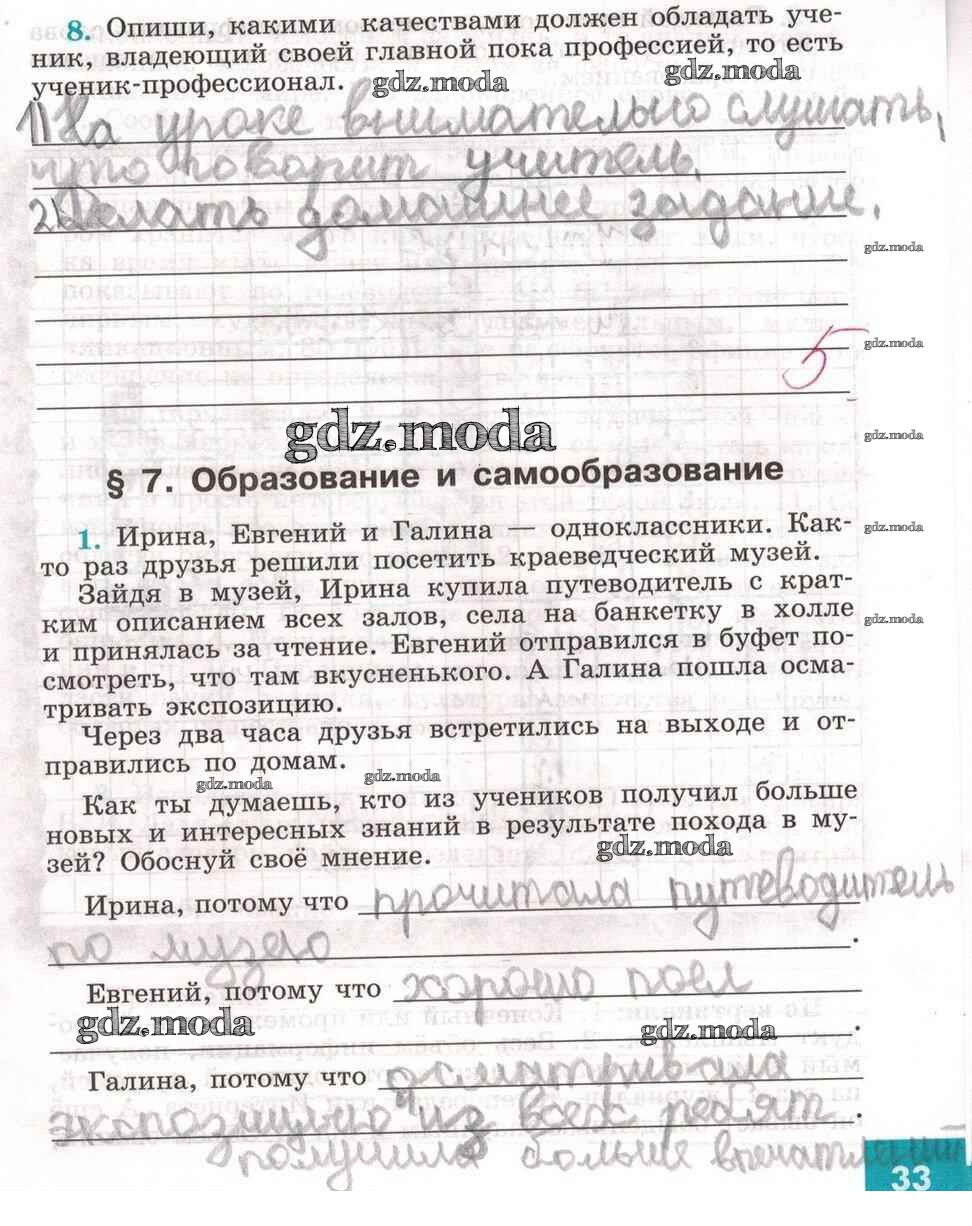 8. Опиши, какими качествами должен обладать уче-
ник, владеющий своей главной пока профессией, то есть
ученик-профессионал. gdz.moda gdz.moda
1) На уроке внимательно слушать,
что говорит учитель.
2) Делать домашнее задание.
gdz.moda
5 gdz.moda
gdz.moda gdz.moda
§ 7. Образование и самообразование
1. Ирина, Евгений и Галина — одноклассники. Как- gdz.moda
то раз друзья решили посетить краеведческий музей.
Зайдя в музей, Ирина купила путеводитель с крат-
ким описанием всех залов, села на банкетку в холле gdz.moda
и принялась за чтение. Евгений отправился в буфет по-
смотреть, что там вкусненького. А Галина пошла осма-
тривать экспозицию.
Через два часа друзья встретились на выходе и от-
правились по домам. gdz.moda gdz.moda
Как ты думаешь, кто из учеников получил больше
новых и интересных знаний в результате похода в му-
зей? Обоснуй своё мнение. gdz.moda
Ирина, потому что прочитала путеводитель
по музею.
Евгений, потому что хорошо поел
gdz.moda gdz.moda.
Галина, потому что осматривала
экспозицию и из всех ребят.
получила больше впечатлений
33